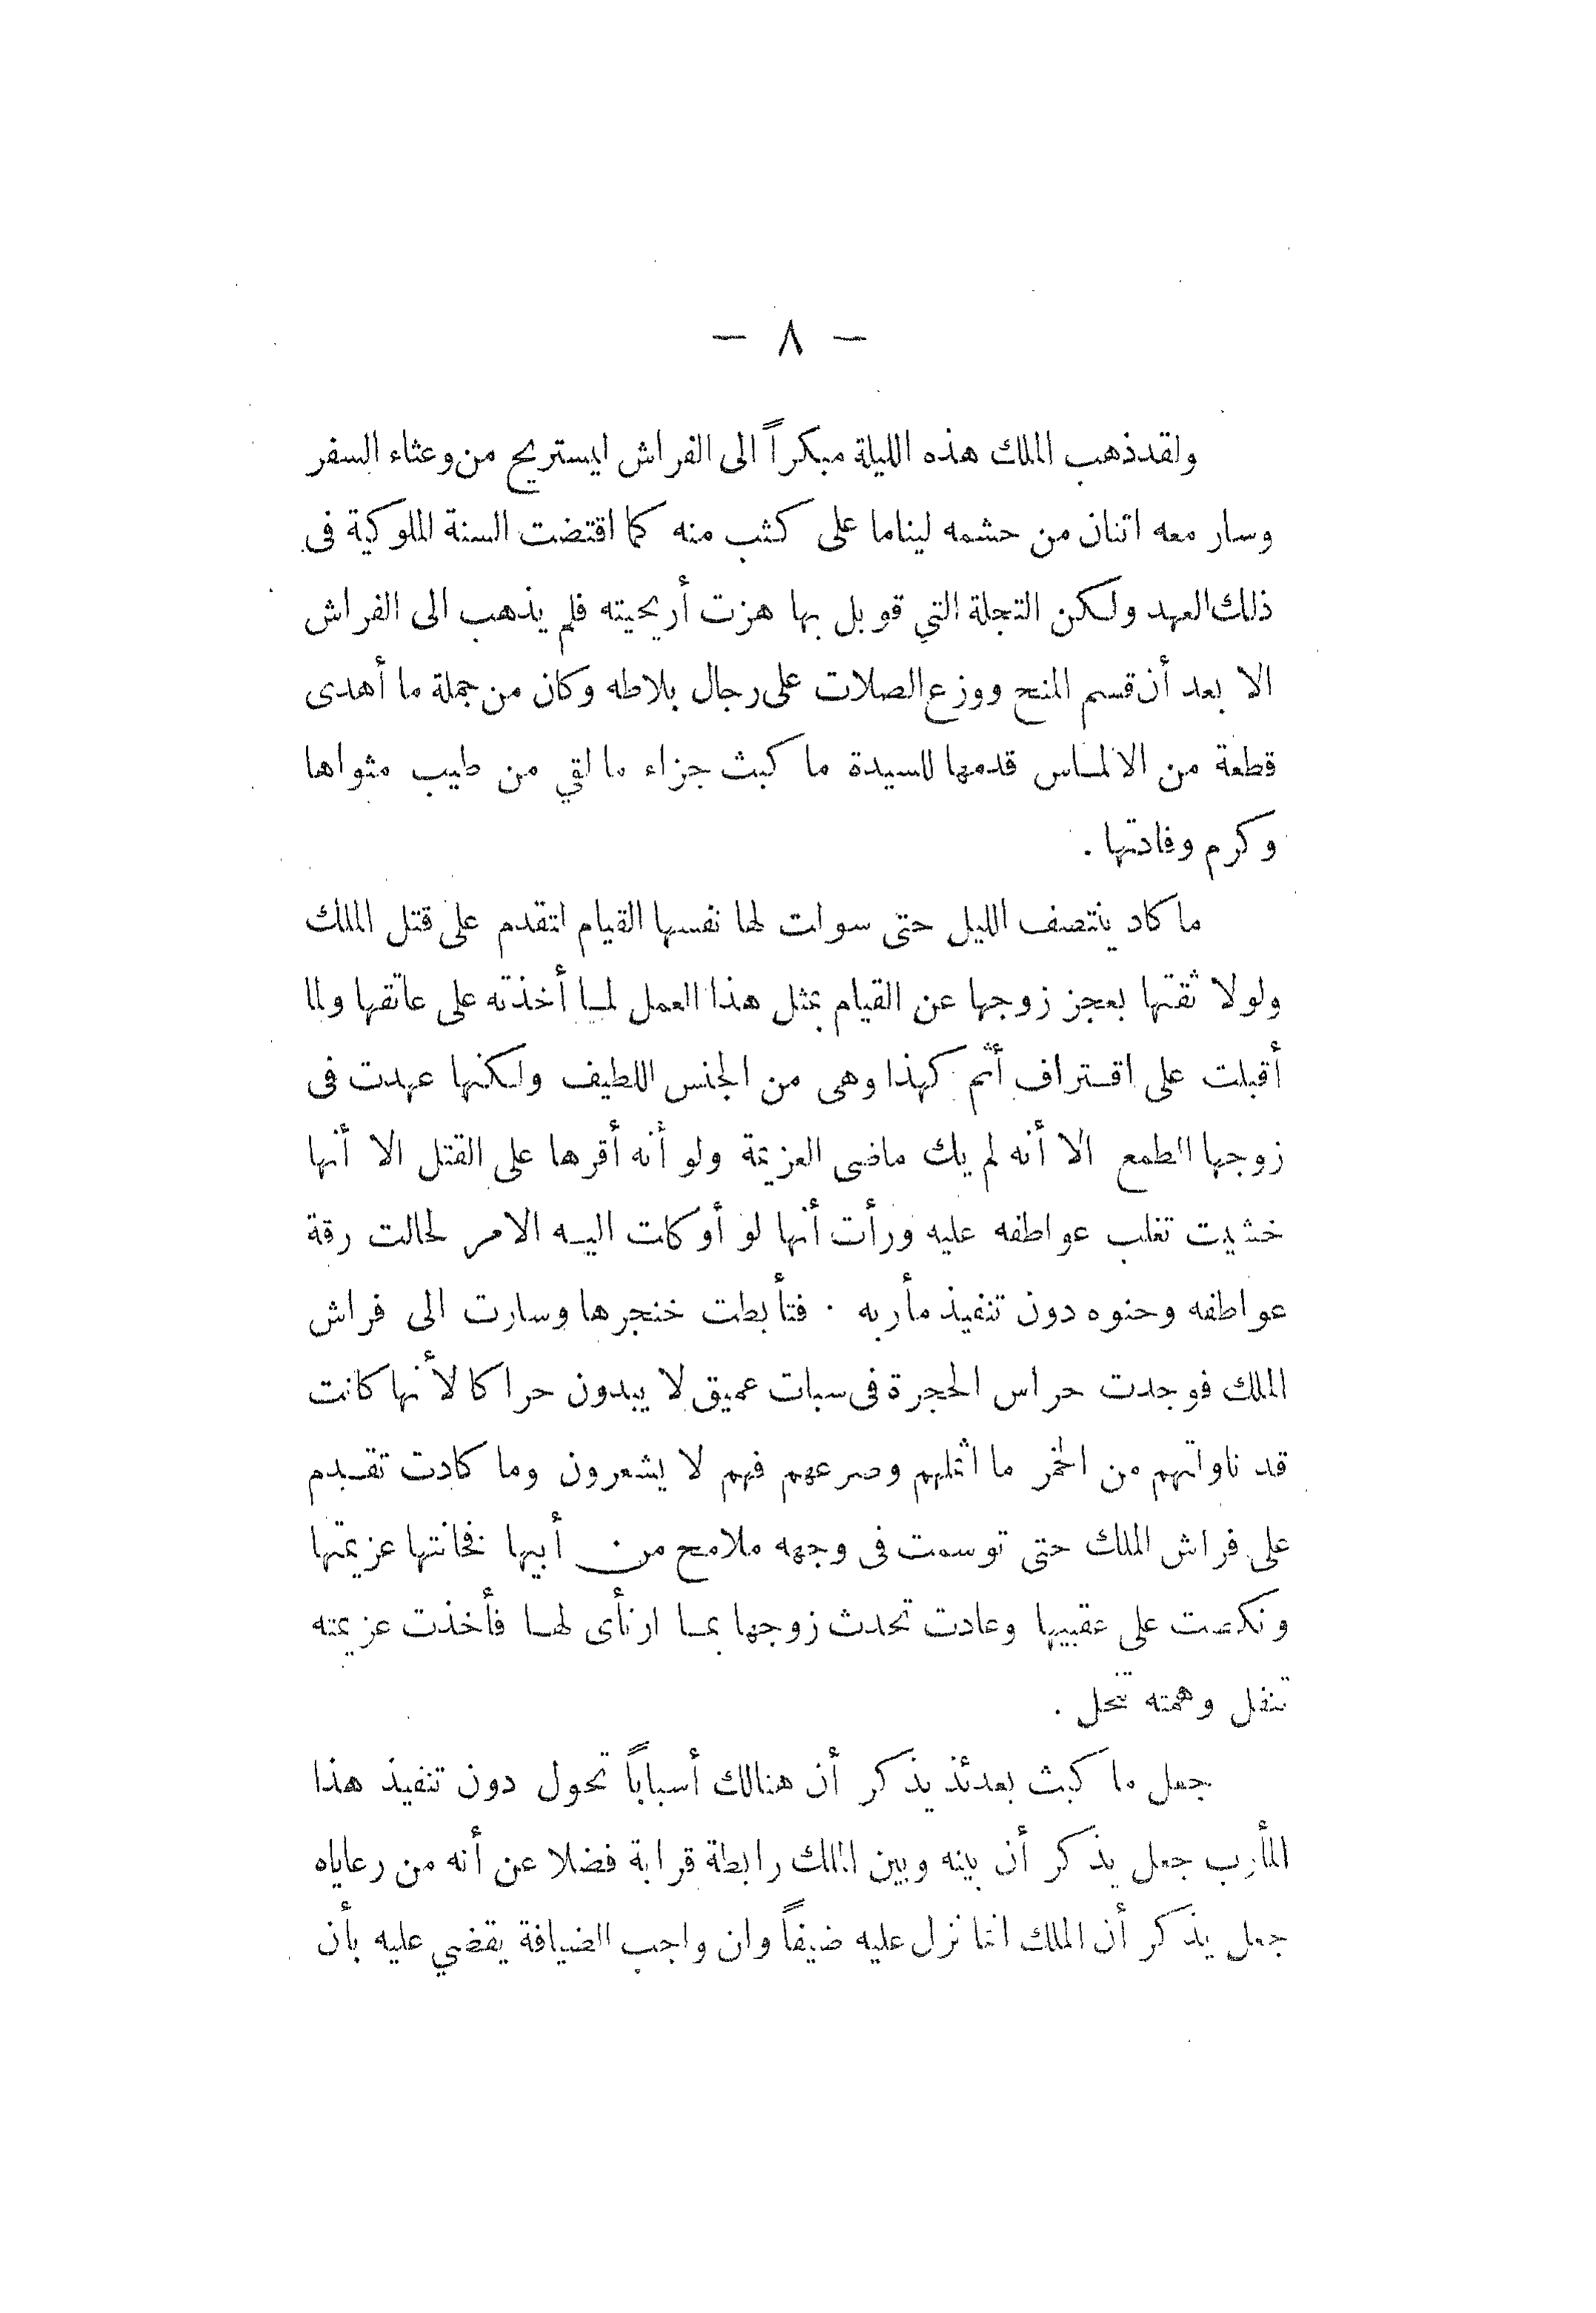 — ٨ —
ولقد ذهب الملك هذه الليلة مبكراً الى الفراش ليستريح من وعثاء السفر
وسار معه اثنان من حشمه ليناما على كثب منه كما اقتضت السنة الملوكية فى
ذلك العهد ولكن التجلة التي قوبل بها هزت أريحيته فلم يذهب الى الفراش
الا بعد أن قسم المنح ووزع الصلات على رجال بلاطه وكان من جملة ما أهدى
قطعة من الالماس قدمها للسيدة ما كبث جزاء ما لقي من طيب مثواها
وكرم وفادتها .
ما كاد ينتصف الليل حتى سولت لها نفسها القيام لتقدم على قتل الملك
ولولا ثقتها بعجز زوجها عن القيام بمثل هذا العمل لما أخذته على عاتقها ولما
أقبلت على اقتراف أثم كهذا وهى من الجنس اللطيف ولكنها عهدت فى
زوجها الطمع الا أنه لم يك ماضى العزيمة ولو أنه أقرها على القتل الا أنها
خشيت تغلب عواطفه عليه ورأت أنها لو أوكلت اليه الامر لحالت رقة
عواطفه وحنوه دون تنفيذ مأربه . فتأبطت خنجرها وسارت الى فراش
الملك فوجدت حراس الحجرة فى سبات عميق لا يبدون حراكا لأنها كانت
قد ناولتهم من الخمر ما اثملهم وصرعهم فهم لا يشعرون وما كادت تقدم
على فراش الملك حتى توسمت فى وجهه ملامح من أبيها فخانتها عزيمتها
ونكصت على عقبيها وعادت تحدث زوجها بما ارتأى لها فأخذت عزيمته
تنفل وهمته تنحل .
جعل ما كبث بعدئذ يذكر أن هنالك أسباباً تحول دون تنفيذ هذا
المأرب جعل يذكر أن بينه وبين الملك رابطة قرابة فضلا عن أنه من رعاياه
جعل يذكر أن الملك انما نزل عليه ضيفاً وان واجب الضيافة يقضي عليه بأن